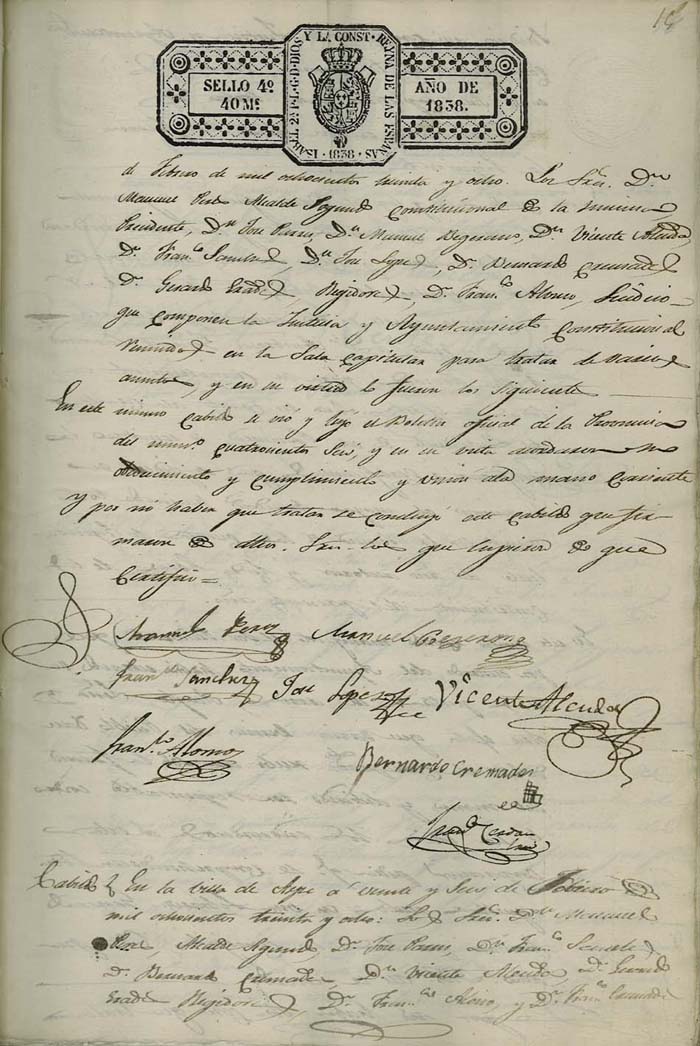 ISABEL 2ª P. L. G. D. DIOS Y LA CONST. REYNA DE LAS ESPAÑAS
SELLO 4º
40 Ms
AÑO DE
1838.
1838
de Febrero de mil ochocientos treinta y ocho. Los Sres. Dn.
Manuel Perez Alcalde Segundo constitucional de la misma
Presidente, Dn. Jose Perez, Dn. Manuel Dn. Vicente Alcudia
Dn. Franco Sanchez, Dn. Jose Lopez, Dn. Bernardo Cremades
Dn. Gerardo Regidores, Dn. Franco Alonso, Sindico
que componen la Justicia y Ayuntamiento Constitucional
reunidos en la Sala Capitular para tratar de varios
asuntos, y en su virtud lo fueron los siguientes
En este mismo Cabildo se vió y leyó el Boletin oficial de la Provincia
del numo. cuatrocientos seis, y en su vista acordaron su
obedecimiento y cumplimiento y
Y por no haber que tratar se concluyó este Cabildo que fir
maron de dhos. Sres. los que supieron de que
Certifico =
Manuel Perez Manuel
Franco Sanchez Jose Lopez Vicente Alcudia
Franco Alonso
Bernardo Cremades
Cabildo En la villa de Aspe á veinte y seis de Febrero de
mil ochocientos treinta y ocho: Los Sres. Dn. Manuel
Perez, Alcalde Segundo, Dn. Jose Perez, Dn. Franco Sanchez
Dn. Bernardo Cremades, Dn. Vicente Alcudia Dn. Gerardo
Regidores, Dn. Franco Alonso, y Dn. Franco